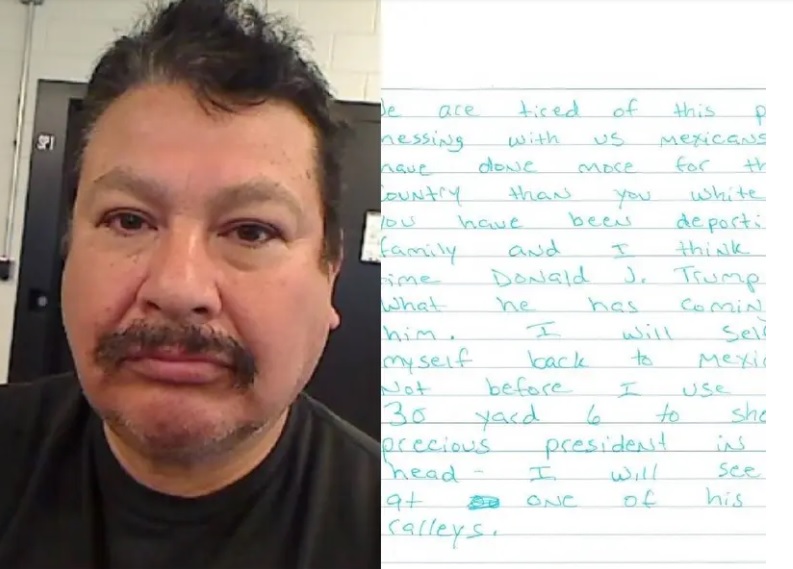 e are tired of this p
nessing with us mexicans
have done more for th
ountry than you white
ou have been deporti
family and I think
ime Donald J. Trump
what he has comin
him. I will sel
myself back to Mexic
Not before I use
30 yard 6 to sho
precious president in
head - I will see
at one of his
ralleys.